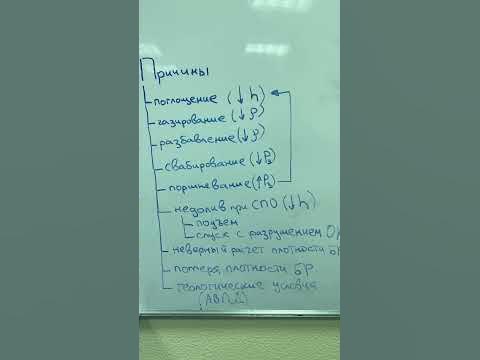 Причины
поглощение (↓ h)
газирование (↓ ρ)
разбавление (↓ ρ)
свабирование (↓ Pз)
поршневание (↑ Pз)
недолив при СПО (↓ h)
подъем
спуск с разрушением ОК
неверный расчет плотности БР
потеря плотности БР
геологические условия
(АВПД)